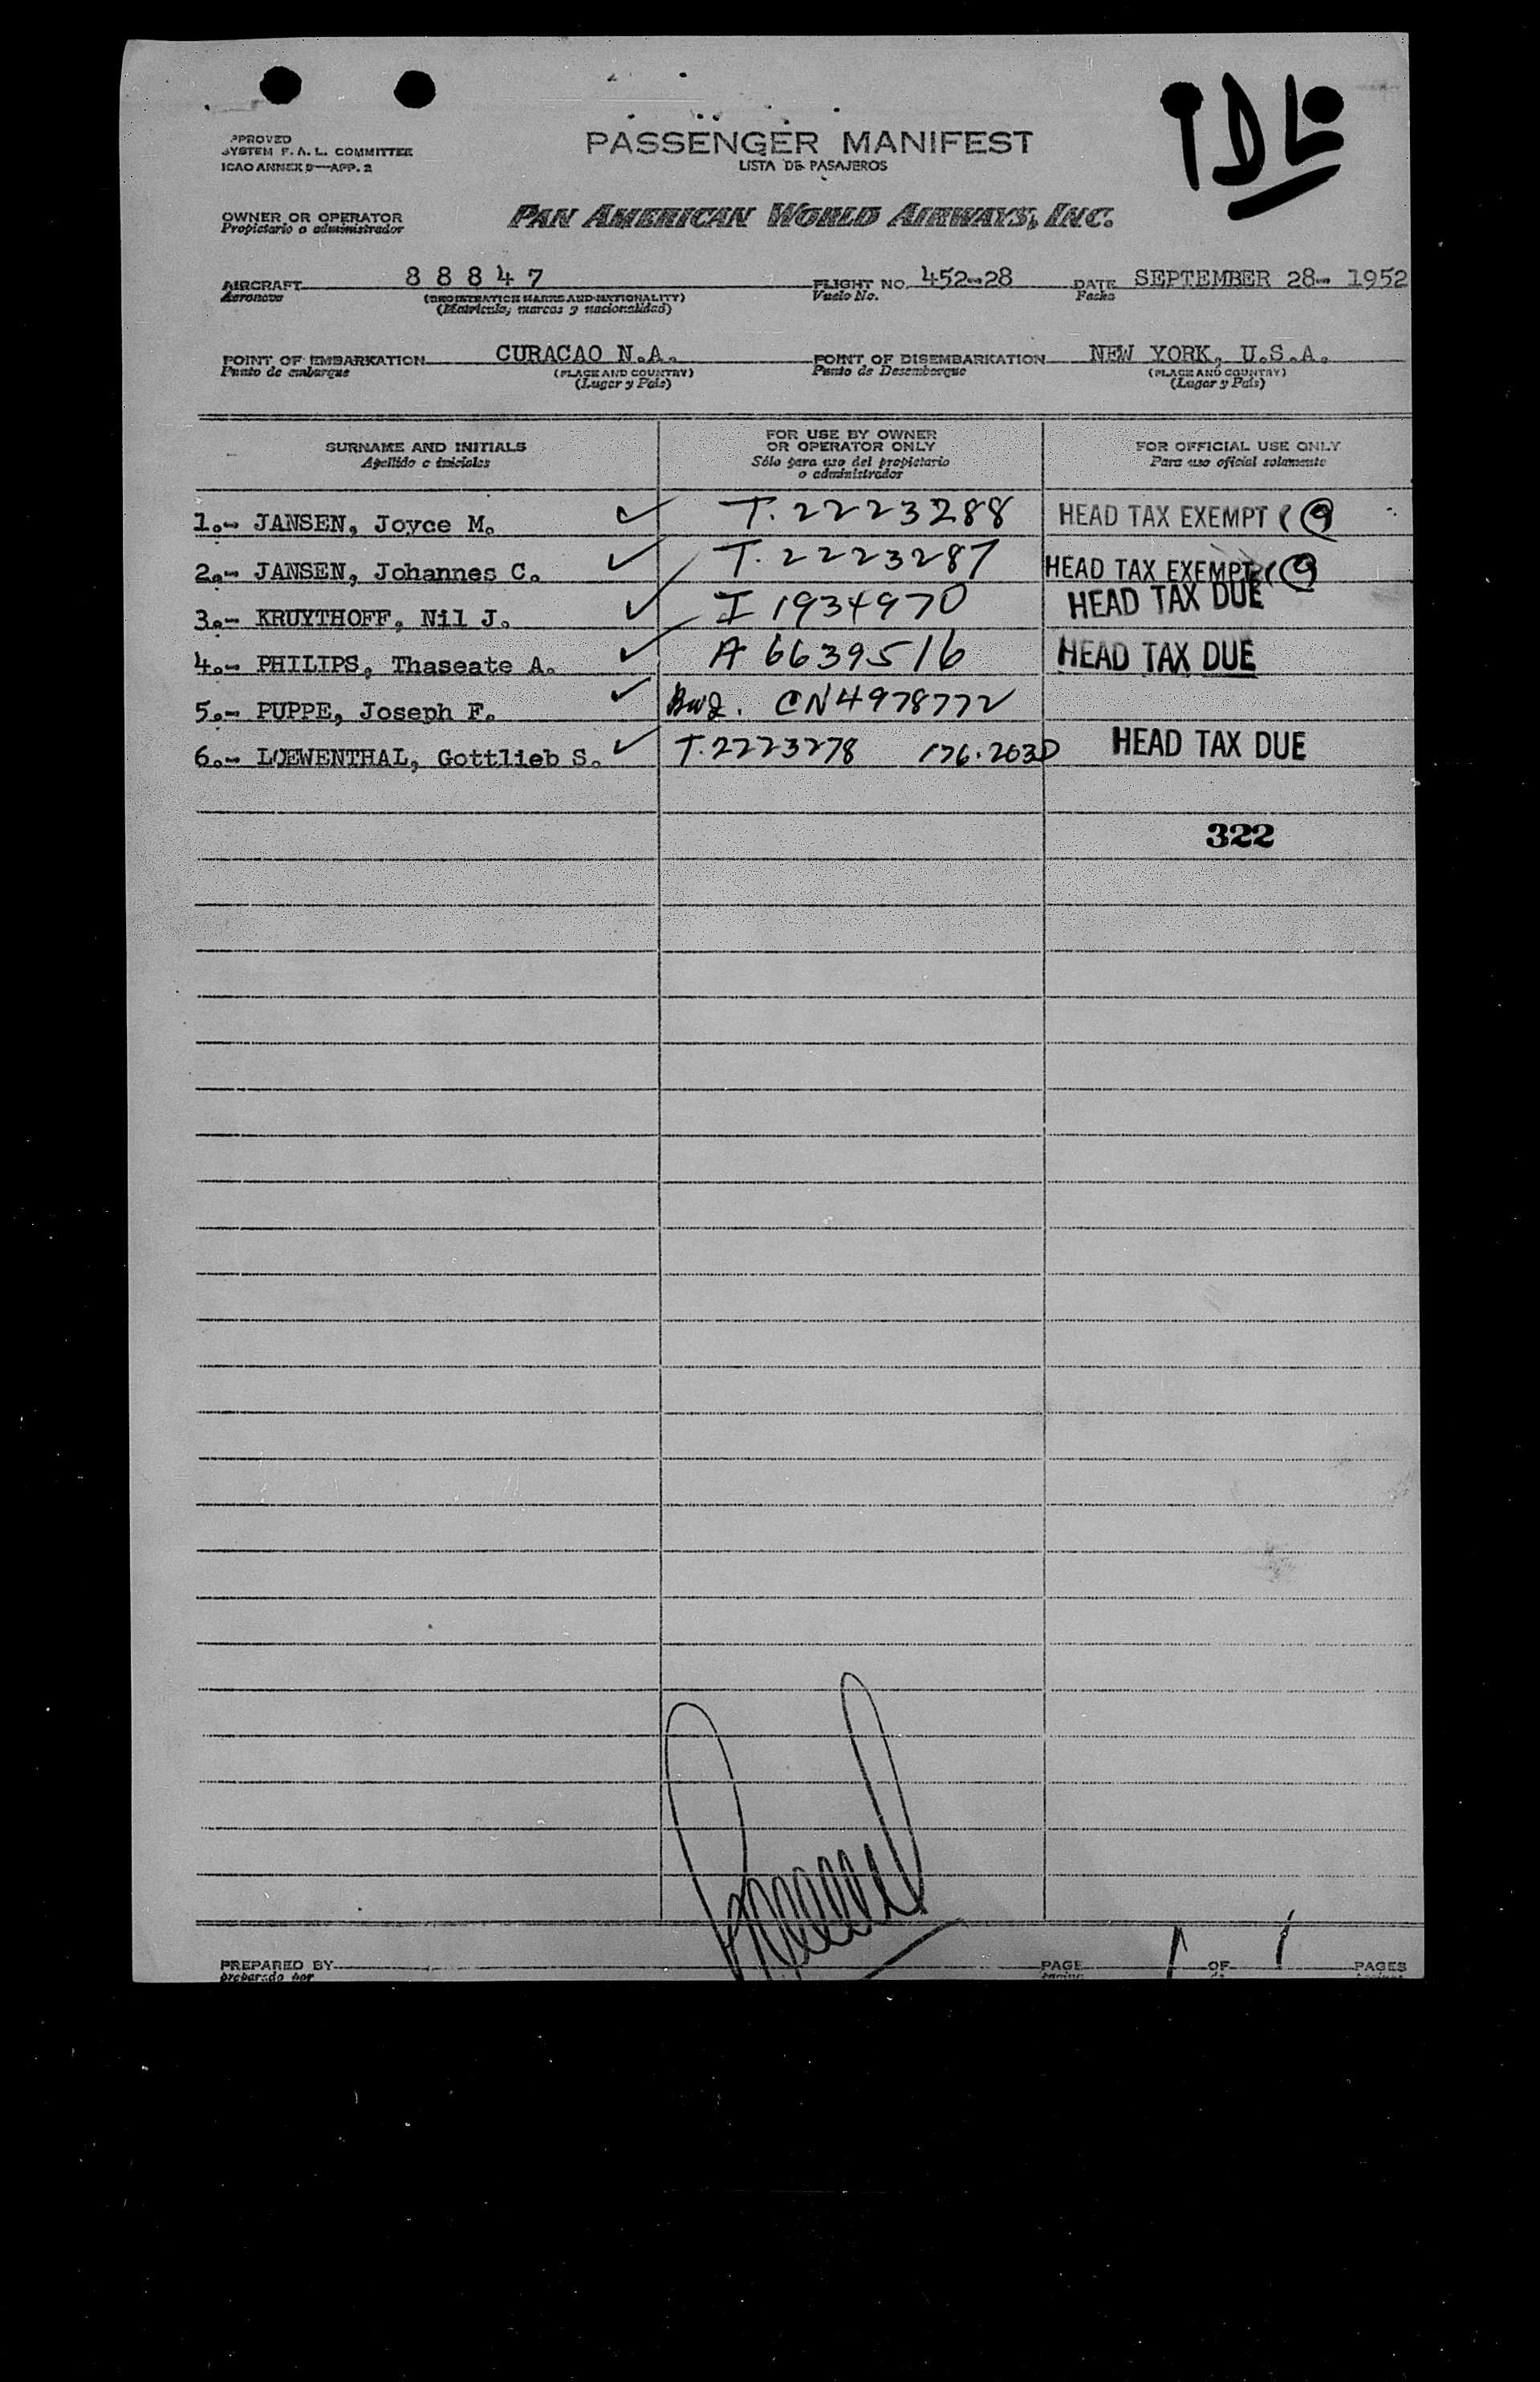 APPROVED
SYSTEM F. A. L. COMMITTEE
ICAO ANNEX 9—APP. 2
PASSENGER MANIFEST
LISTA DE PASAJEROS
OWNER OR OPERATOR
Propietario o administrador
PAN AMERICAN WORLD AIRWAYS, INC.
AIRCRAFT 8 8 8 4 7 FLIGHT NO. 452-28 DATE SEPTEMBER 28- 1952
Aeronave (REGISTRATION MARKS AND NATIONALITY) Vuelo No. Fecha
(Matrícula, marcas y nacionalidad)
POINT OF EMBARKATION CURACAO N.A. POINT OF DISEMBARKATION NEW YORK, U.S.A.
Punto de embarque (PLACE AND COUNTRY) Punto de Desembarque (PLACE AND COUNTRY)
(Lugar y País) (Lugar y País)
SURNAME AND INITIALS FOR USE BY OWNER OR OPERATOR ONLY FOR OFFICIAL USE ONLY
Apellido e iniciales Sólo para uso del propietario o administrador Para uso oficial solamente
1.- JANSEN, Joyce M. T. 2223288 HEAD TAX EXEMPT
2.- JANSEN, Johannes C. T. 2223287 HEAD TAX EXEMPT
3.- KRUYTHOFF, Nil J. I 1934970 HEAD TAX DUE
4.- PHILIPS, Thaseate A. A 6639516 HEAD TAX DUE
5.- PUPPE, Joseph F. CN4978772
6.- LOEWENTHAL, Gottlieb S. T. 2223278 176.203D HEAD TAX DUE
322
PREPARED BY PAGE 1 OF 1 PAGES
preparado por